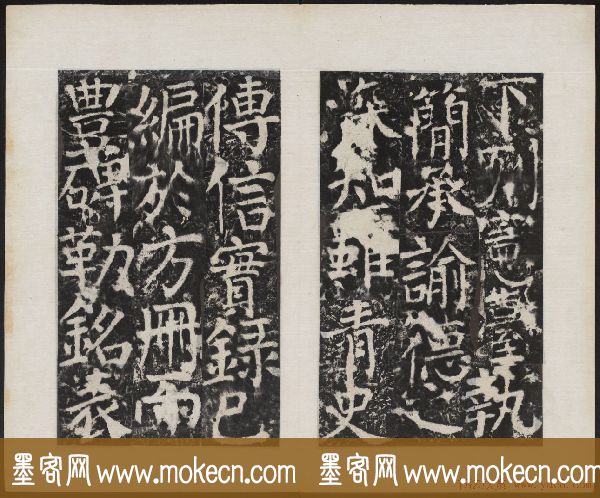 下列憲臺執
簡承諭德之
知雖青史
傳信實錄已
編於方冊而
豊碑勒銘表
墨客网 www.mokecn.com
墨客网 www.mokecn.com